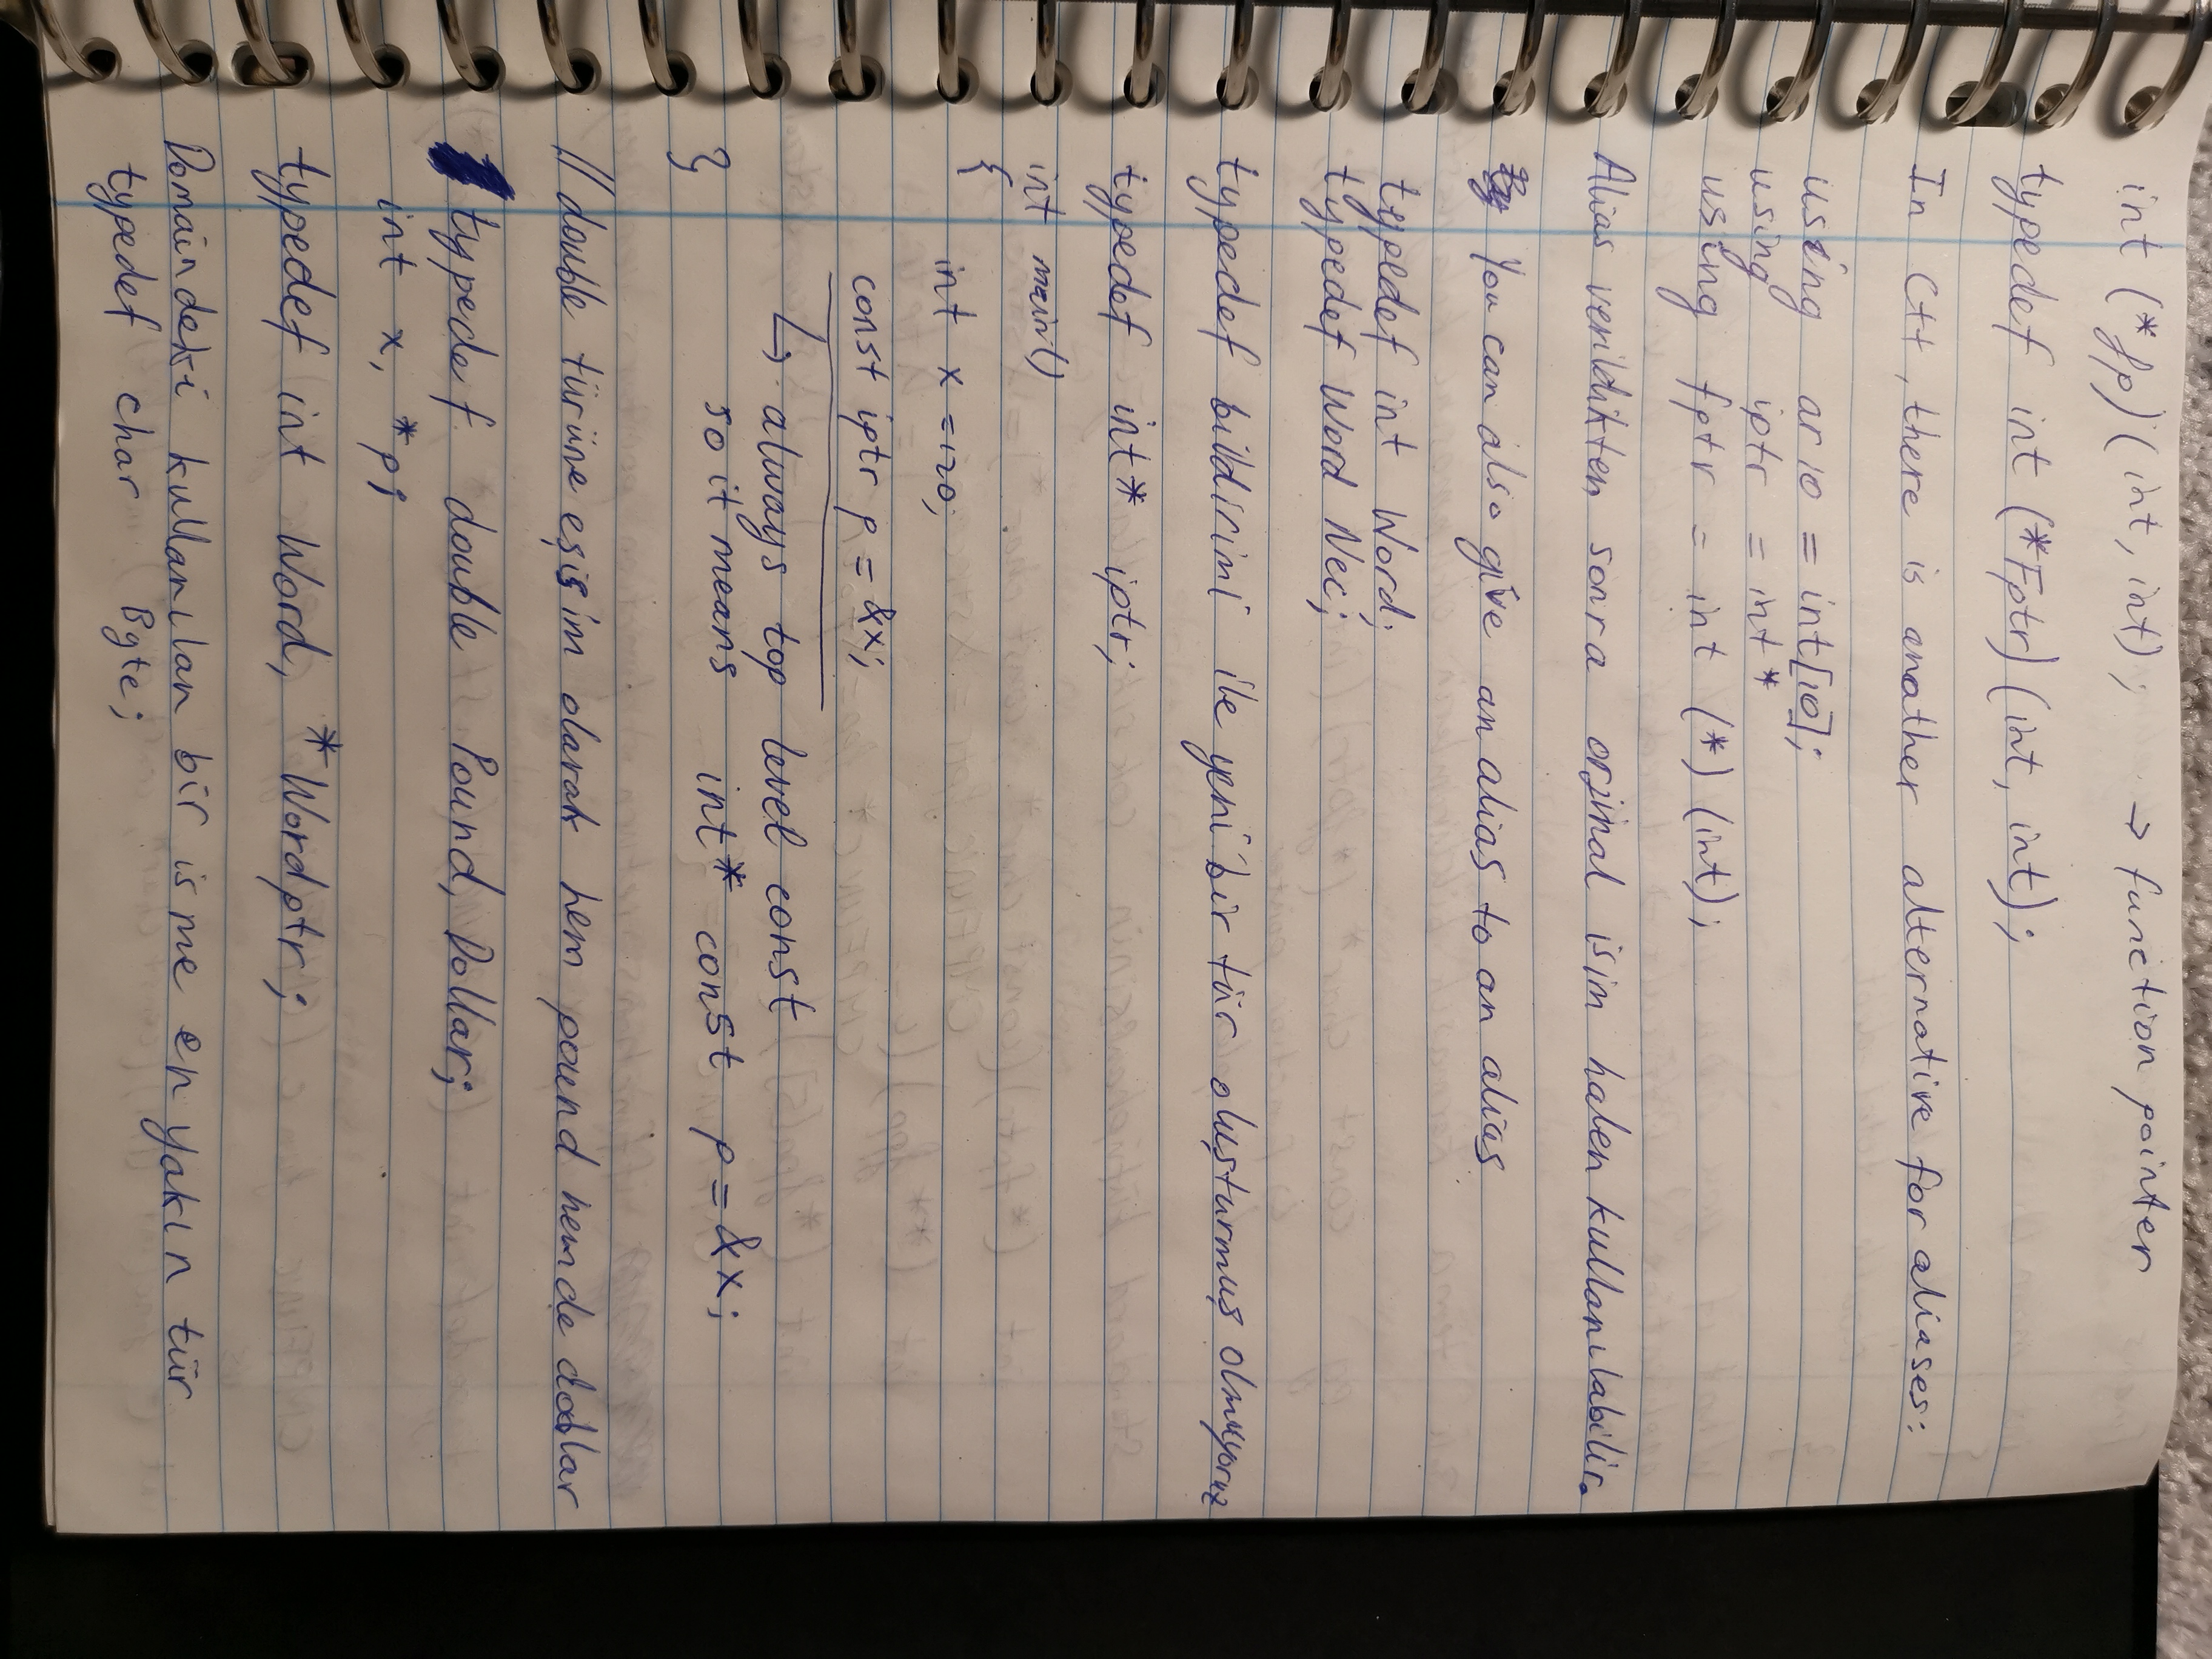 int (*fp)(int, int); → function pointer
typedef int (*Fptr)(int, int);
In C++, there is another alternative for aliases:
using ar10 = int[10];
using iptr = int*
using fptr = int (*)(int);
Alias verildikten sonra orjinal isim halen kullanılabilir.
You can also give an alias to an alias
typedef int Word;
typedef Word Nec;
typedef bildirimi ile yeni bir tür oluşturmuş olmuyoruz
typedef int* iptr;
int main()
{
int x = 120;
const iptr p = &x;
↳ always top level const
so it means int* const p = &x;
}
// double türüne eşisim olarak hem pound hem de dollar
typedef double Pound, Dollar;
int x, *p;
typedef int Word, *Wordptr;
Domaindeki kullanılan bir isme en yakın tür
typedef char Byte;